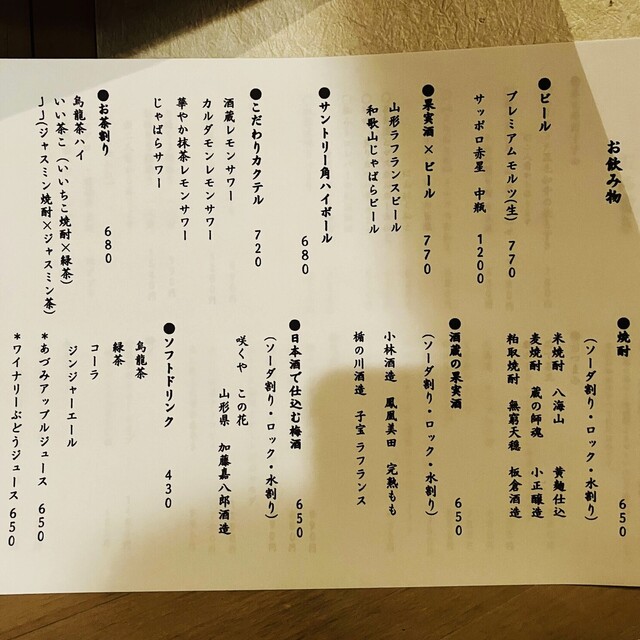 お飲み物
●ビール
プレミアムモルツ(生) 770
サッポロ赤星 中瓶 1200
●果実酒×ビール 770
山形ラフランスビール
和歌山じゃばらビール
●サントリー角ハイボール
680
●こだわりカクテル 720
酒蔵レモンサワー
カルダモンレモンサワー
華やか抹茶レモンサワー
じゃばらサワー
●お茶割り 680
烏龍茶ハイ
いい茶こ(いいちこ焼酎×緑茶)
JJ(ジャスミン焼酎×ジャスミン茶)
●焼酎 650
(ソーダ割り・ロック・水割り)
米焼酎 八海山 黄麹仕込
麦焼酎 蔵の師魂 小正醸造
粕取焼酎 無窮天穏 板倉酒造
●酒蔵の果実酒 650
(ソーダ割り・ロック・水割り)
小林酒造 鳳凰美田 完熟もも
楯の川酒造 子宝ラフランス
●日本酒で仕込む梅酒 650
(ソーダ割り・ロック・水割り)
咲くや この花
山形県 加藤嘉八郎酒造
●ソフトドリンク 430
烏龍茶
緑茶
コーラ
ジンジャーエール
*あづみアップルジュース 650
*ワイナリーぶどうジュース 650